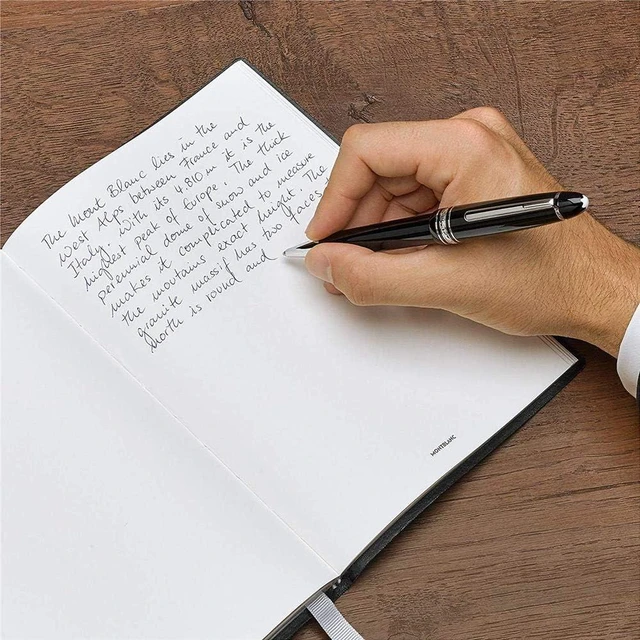 The Mont Blanc lies in the
West Alps between France and
Italy. With its 4.810 m it is the
highest Peak of Europe. The thick
perennial dome of snow and ice
makes it complicated to measure
the mountains exact height. The
granite massif has two faces
North is round and
MONTBLANC